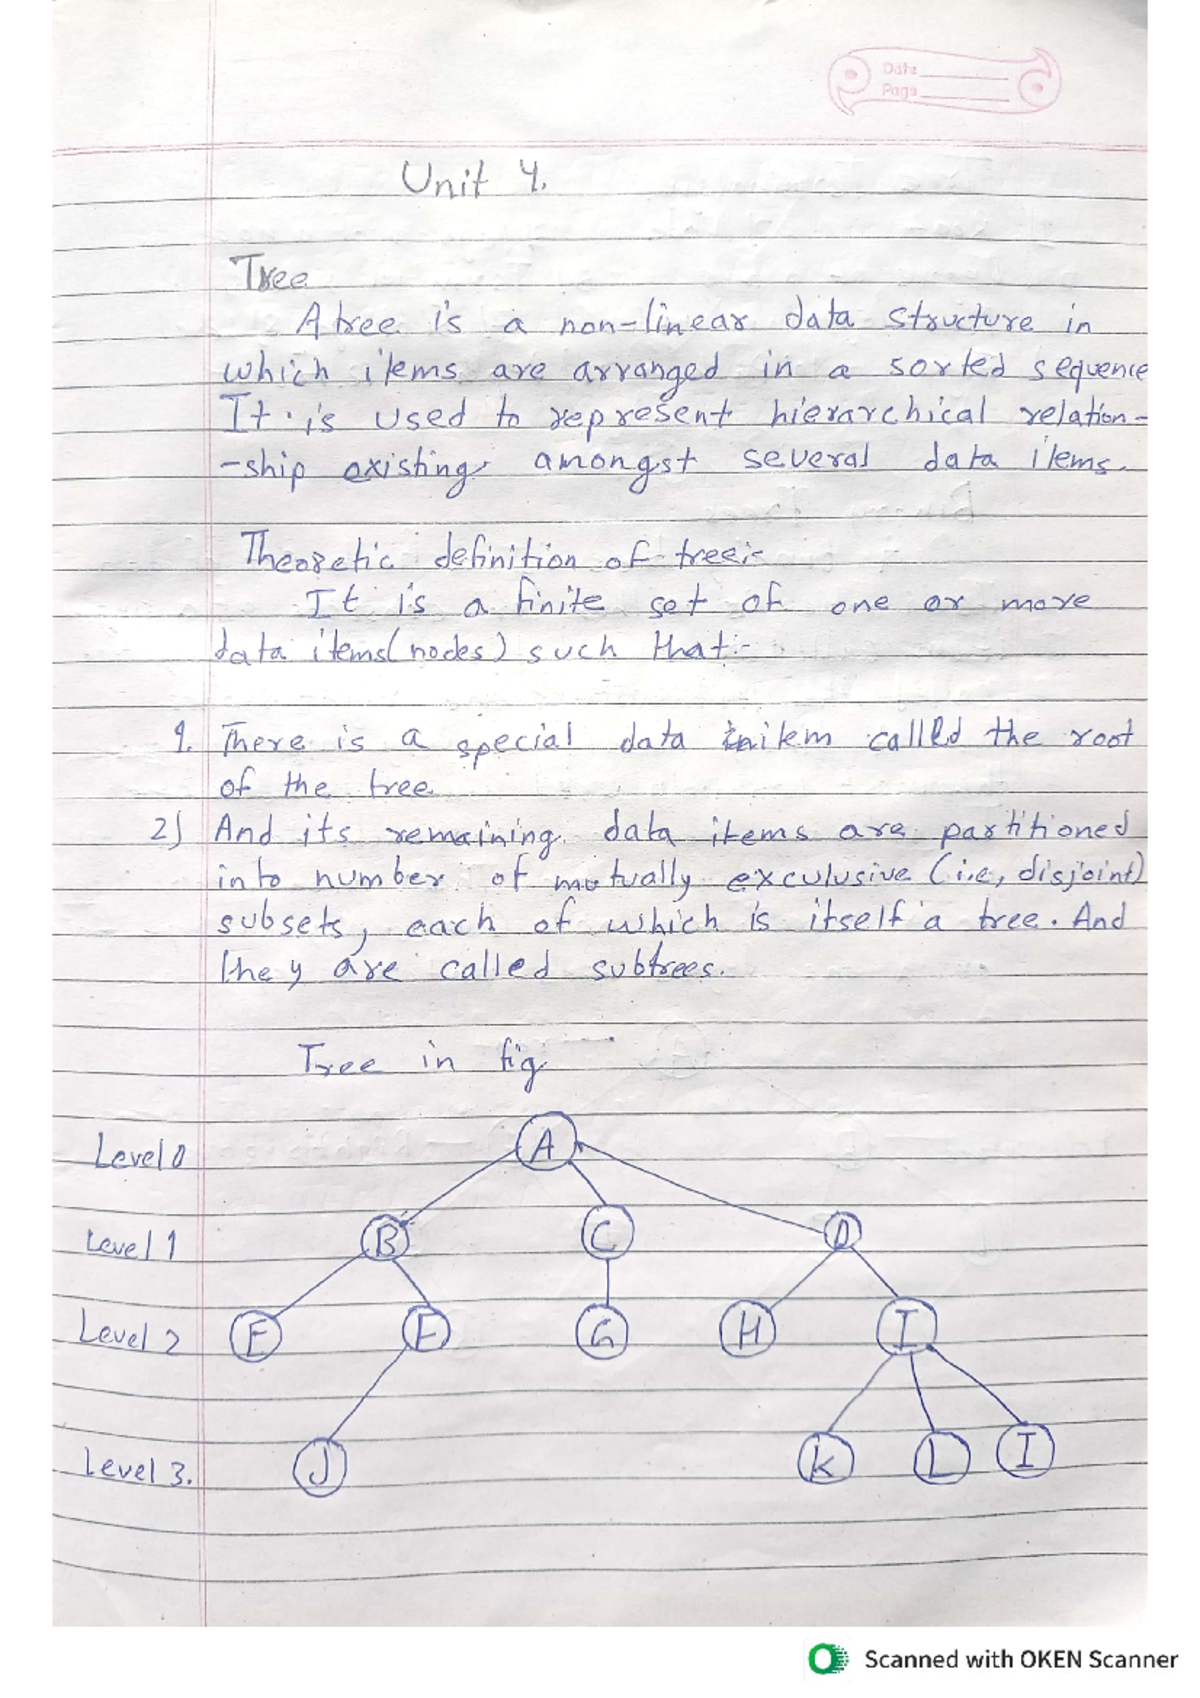 Date
Page
Unit 4.
Tree
A tree is a non-linear data structure in
which items are arranged in a sorted sequence
It is used to represent hierarchical relation-
-ship existing amongst several data items.
Theoretic definition of tree:-
It is a finite set of one or more
data items(nodes) such that:-
1. There is a special data item called the root
of the tree
2) And its remaining data items are partitioned
into number of mutually exculusive (i.e, disjoint)
subsets, each of which is itself a tree. And
they are called subtrees.
Tree in fig
Level 0 A
Level 1 B C D
Level 2 E F G H I
Level 3. J K L I
Scanned with OKEN Scanner